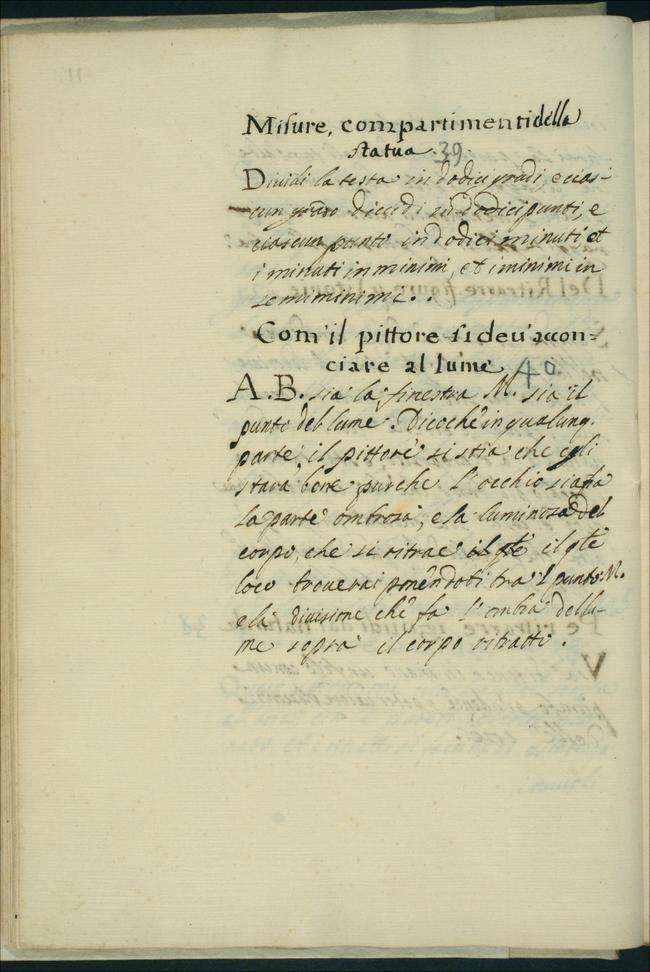 Misure, compartimenti della
statua. 39.
Dividi la testa in dodici gradi, e cias-
cun grado dividi in dodici punti, e
ciascun punto in dodici minuti et
i minuti in minimi, et i minimi in
semiminimi..
Com'il pittore si deu'accon=
ciare al lume 40
A.B. sia la finestra M. sia il
punto del lume. Dico che in qualunq.
parte il pittore si stia che egli
starà bene purche l'occhio sia fra
la parte ombrosa, e la luminosa del
corpo, che si ritrae il qle
loco troverai ponendoti tra 'l punto M.
e la divisione che fa l'ombra del lu-
me sopra il corpo ritratto.